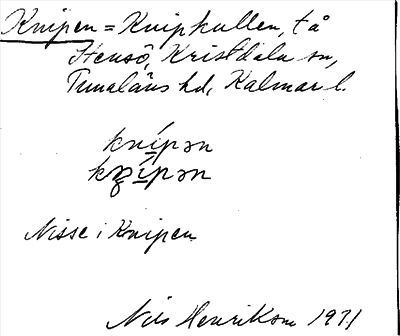 Knipen = Knipkullen, t å
Stensö, Kristdala sn,
Tunaläns hd, Kalmar l.
knípən
kn̥ípən
Nisse i Knipen
Nils Henrikson 1971